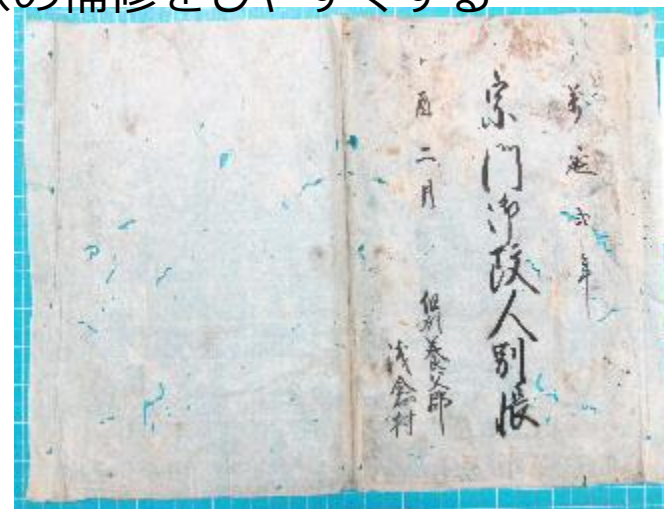 の補修をしやすくする
萬延弐年
宗門御改人別帳
酉二月
但州養父郡
浅倉村